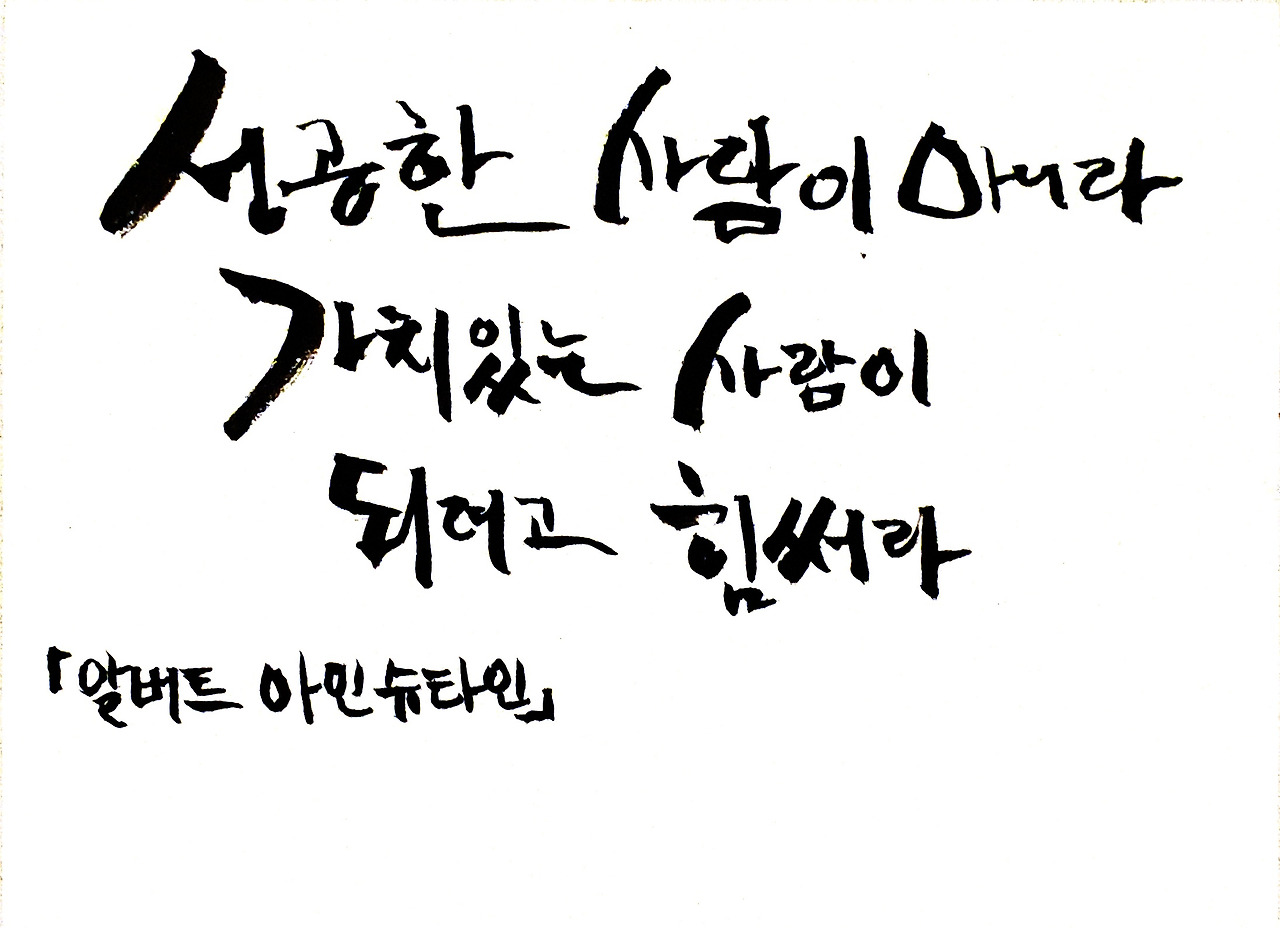 성공한 사람이 아니라
가치있는 사람이
되려고 힘써라
「알버트 아인슈타인」